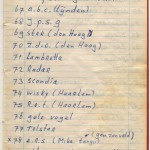 67 a.b.c. (Lijnden)
68 J.p.s.g
69 Stek (den Haag)
70 I.d.o. (den Haag)
71 Lambretta
72 Radar
73 Scandia
74 Wisky (Haarlem)
75 R.e.t. (Haarlem)
76 gele vogel
77 Telstar
x 78 a.R.S.